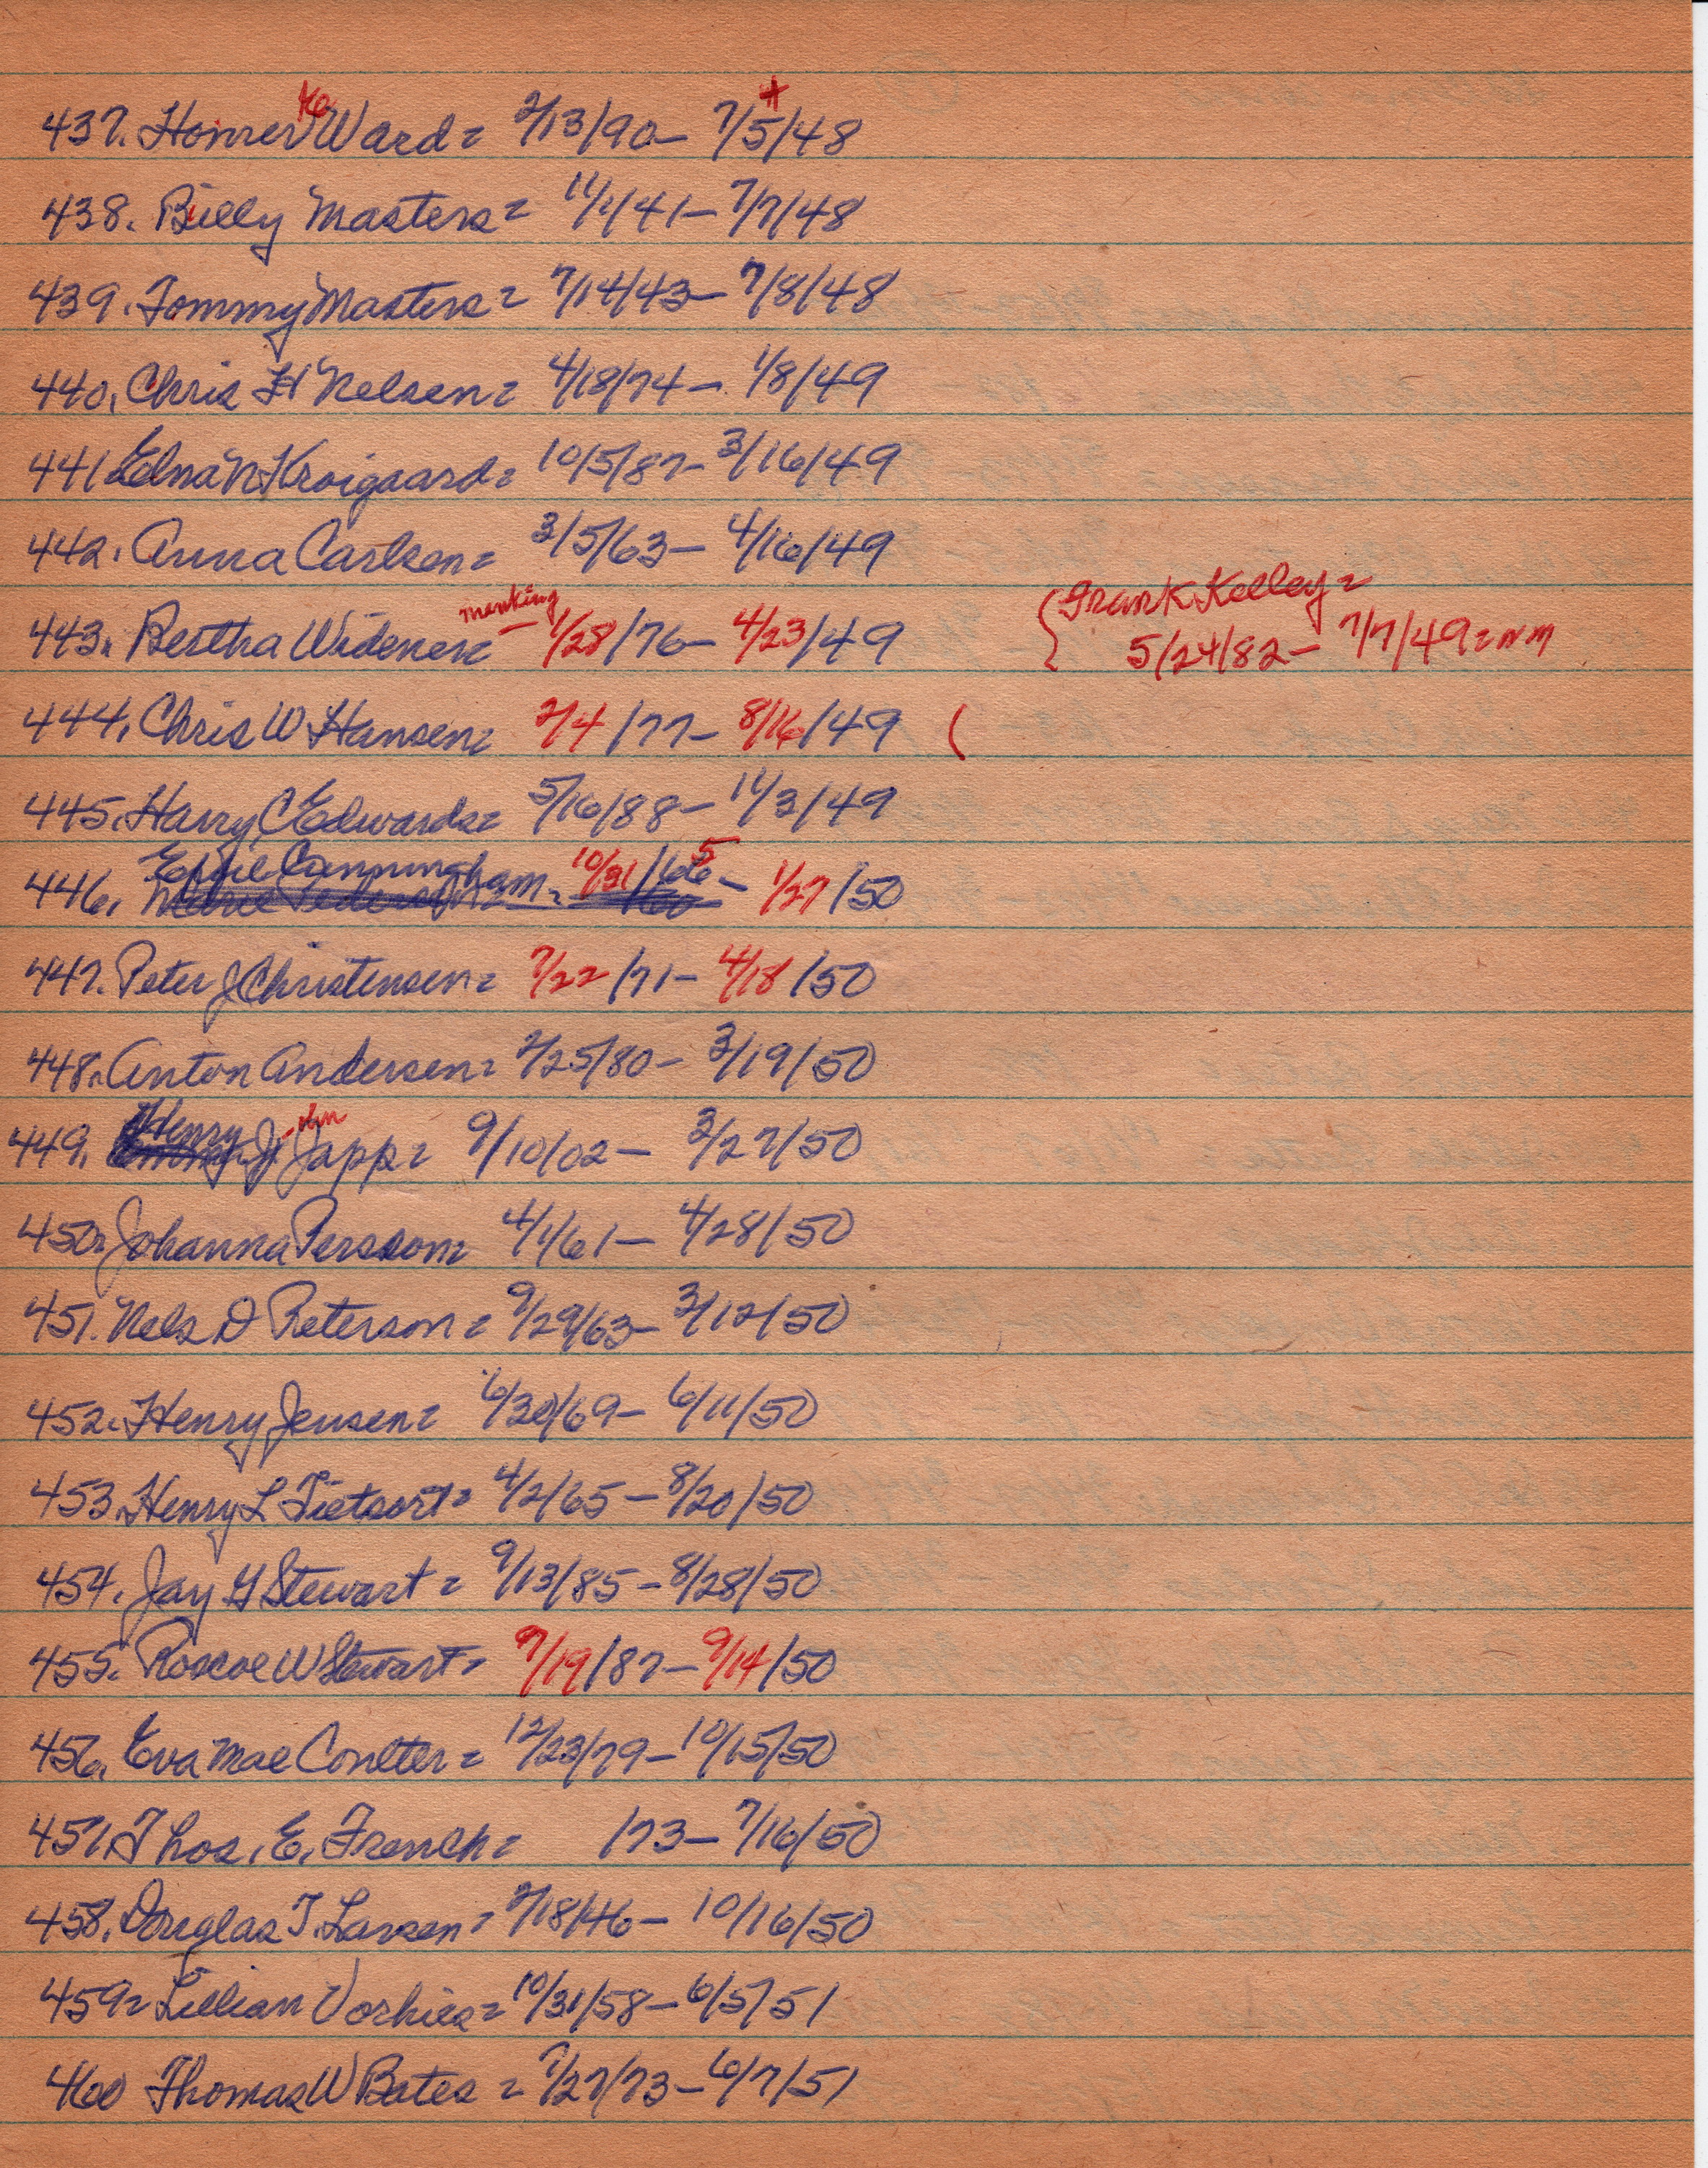 437. Homer Ward = 2/13/90 – 7/5/48
438. Billy Masters = 11/1/41 – 7/7/48
439. Tommy Masters = 7/14/43 – 7/8/48
440. Chris H Nelsen = 4/18/74 – 1/8/49
441 Edna N Kroigaard = 10/5/87 – 3/16/49
442. Anna Carlsen = 3/5/63 – 4/16/49
443. Bertha Widener = 1/28/76 – 4/23/49
{ Frank Kelley =
5/24/82 – 7/7/49 = NM
444. Chris W Hansen = 2/4/77 – 8/16/49 (
445. Harry C Edwards = 5/16/88 – 11/3/49
446. Effie Cunningham = 10/31/665 – 1/27/50
447. Peter J Christensen = 7/22/71 – 4/18/50
448. Anton Andersen = 2/25/80 – 3/19/50
449. Henry J. Japp = 9/10/02 – 3/27/50
450. Johanna Persson = 4/1/61 – 4/28/50
451. Nels D Peterson = 9/29/63 – 3/12/50
452. Henry Jensen = 6/30/69 – 6/11/50
453. Henry L Tietsort = 4/2/65 – 8/20/50
454. Jay G Stewart = 9/13/85 – 8/28/50
455. Roscoe W Stewart = 9/19/87 – 9/14/50
456. Eva Mae Coulter = 12/23/79 – 10/15/50
457. Thos. E. French = /73 – 7/16/50
458. Douglas T. Larsen = 2/18/46 – 10/16/50
459 = Lillian Vorhies = 10/31/58 – 6/5/51
460 Thomas W Bates = 7/27/73 – 6/7/51